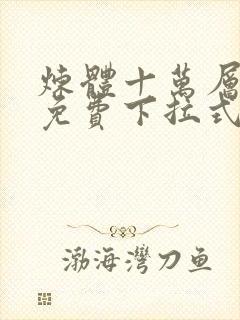 煉體十萬層
免費下拉式
渤海灣刀鱼